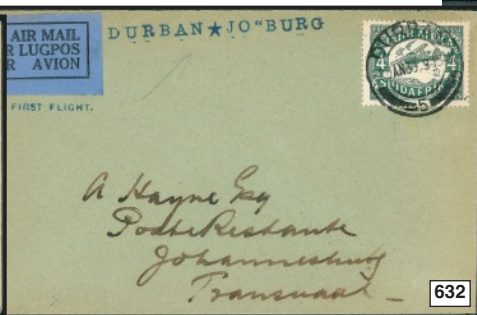 AIR MAIL
R LUGPOS
R AVION
DURBAN★JO"BURG
FIRST FLIGHT.
4 4
SUIDAFRIKA
25
A Hayne Esq
Poste Restante
Johannesburg
Transvaal
632